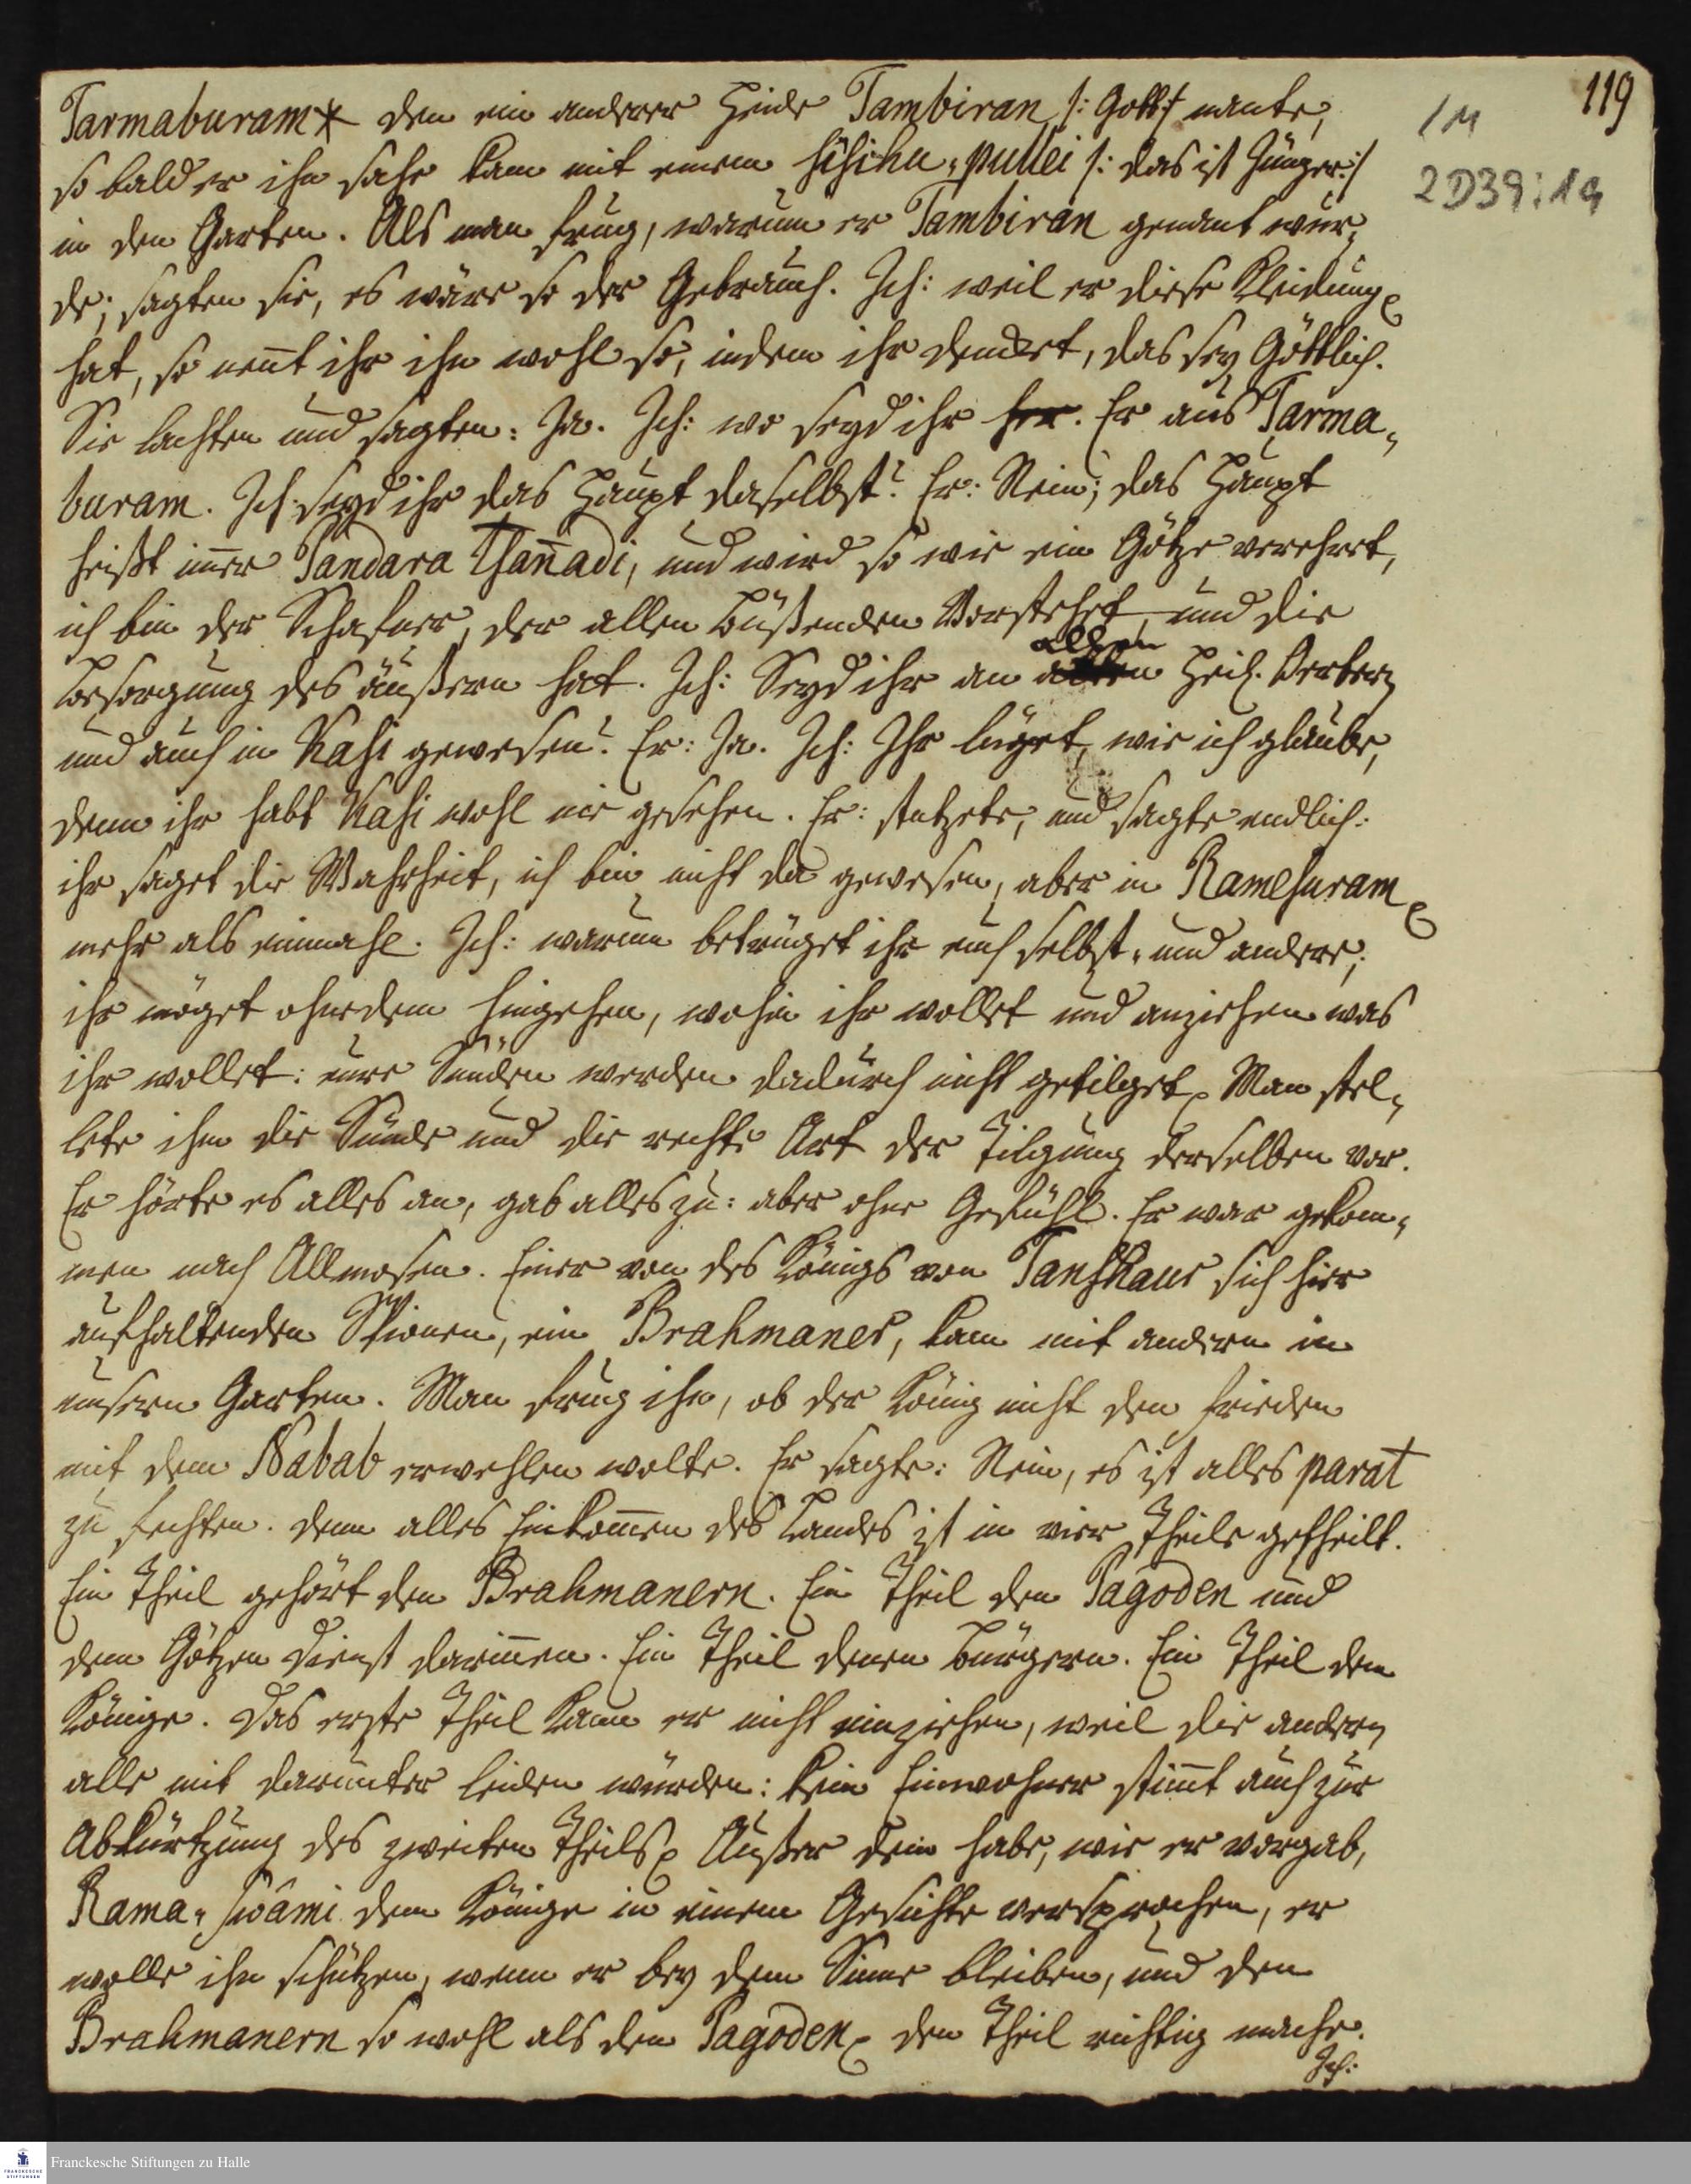 119
1M
2D39:19
Tarmaburam * den ein anderer Heide Tambiran /: Gott :/ nante,
so bald er ihn sahe kam mit einem sischia-pullei /: das ist Jünger :/
in den Garten. Als man frug, warum er Tambiran genant wür-
de; sagten sie, es wäre so der Gebrauch. Ich: weil er diese Kleidung
hat, so nent ihr ihn wohl so, indem ihr dencket, das sey Göttlich.
Sie lachten und sagten: Ja. Ich: wo seyd ihr her. Er aus Tarma-
buram. Ich: seyd ihr das Haupt daselbst? Er: Nein; das Haupt
heißt immer Pandara Tsannadi, und wird so wie ein Götze verehret,
ich bin der Schafner, der allen Büßenden Vorstehet, und die
Besorgung des äußern hat. Ich: Seyd ihr an allen Heil. Oertern
und auch in Kasi gewesen? Er: Ja. Ich: Ihr lüget, wie ich glaube,
denn ihr habt Kasi wohl nie gesehen. Er: stutzete, und sagte endlich:
ihr saget die Wahrheit, ich bin nicht da gewesen, aber in Ramesuram
mehr als einmahl. Ich: warum betrüget ihr euch selbst, und andere;
ihr möget ohnedem hingehen, wohin ihr wollet und anziehen was
ihr wollet: eure Sünden werden dadurch nicht getilget. Man stel-
lete ihm die Sünde und die rechte Art der Tilgung derselben vor.
Er hörte es alles an, gab alles zu: aber ohne Gefühl. Er war gekom-
men nach Allmosen. Einer von des Königs von Tanschaur sich hier
aufhaltenden Spionen, ein Brahmaner, kam mit andern in
unsern Garten. Man frug ihn, ob der König nicht den Frieden
mit dem Nabab erwehlen wolte. Er sagte: Nein, es ist alles parat
zu fechten. denn alles Einkommen des Landes ist in vier Theile getheilt.
Ein Theil gehört den Brahmanern. Ein Theil den Pagoden und
dem Götzen Dienst darinnen. Ein Theil denen Bürgern. Ein Theil dem
Könige. Das erste Theil kann er nicht einziehen, weil die andern
alle mit darunter leiden würden: kein Einwohner stimt auch zur
Abkürtzung des zweiten Theils. Außer dem habe, wie er vorgab,
Rama-swâmi dem Könige in einem Gesichte versprochen, er
wolle ihn schützen, wenn er bey dem Sinne bleiben, und den
Brahmanern so wohl als den Pagoden den Theil richtig mache.
Ich:
Franckesche Stiftungen zu Halle